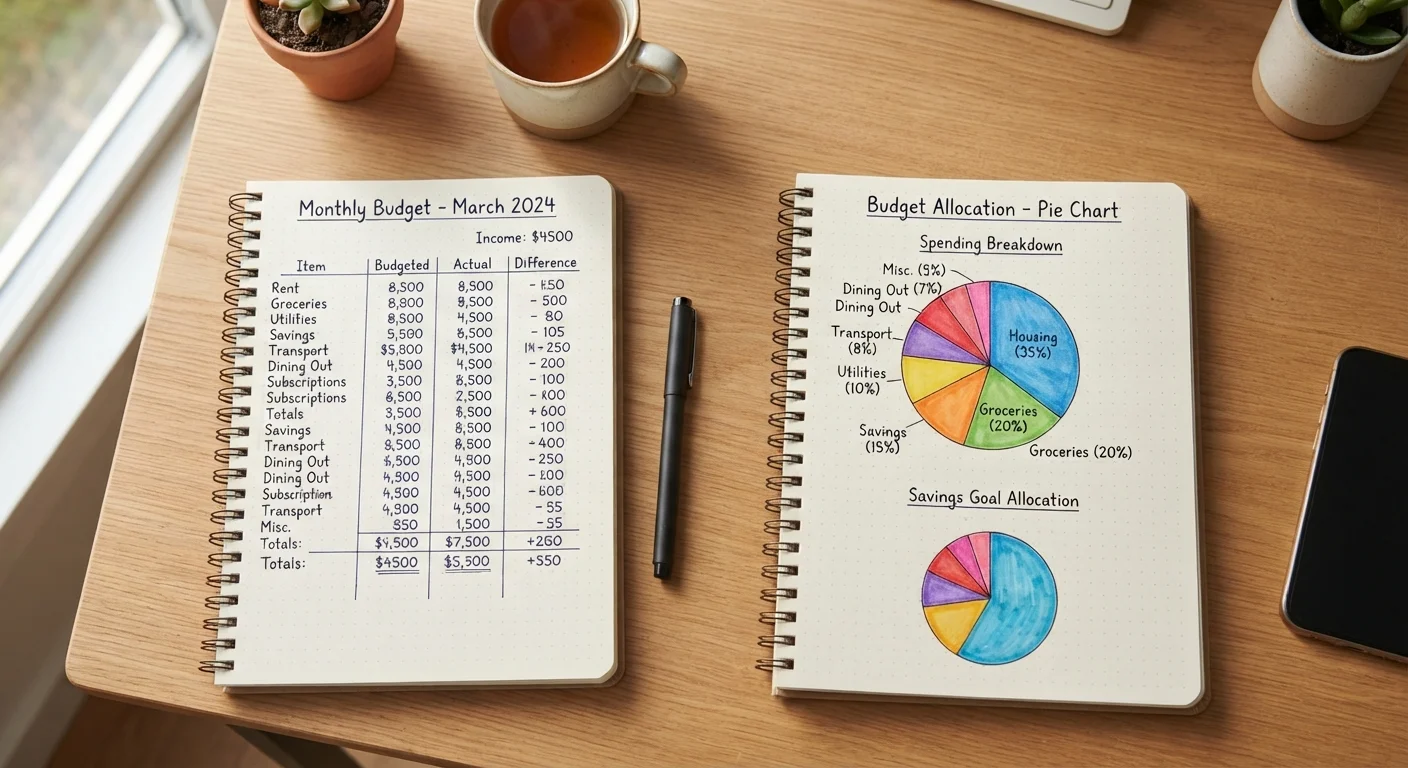 Monthly Budget - March 2024
Income: $4500
Item Budgeted Actual Difference
Rent 8,500 8,500
Groceries 8,800 8,500 - 500
Utilities 8,500 4,500 - 80
Savings 5,500 8,500 - 105
Transport $5,800 $4,500 - 250
Dining Out 4,500 4,500 - 200
Subscriptions 3,500 8,500 - 100
Subscriptions 6,500 2,500
Totals 3,500 $,500 + 600
Savings 4,500 8,500 - 100
Transport 8,500 8,500 - 400
Dining Out 4,900 - 250
Dining Out 4,300 4,500
Subscription 4,500 4,500 - 600
Transport 4,300 4,500 - 55
Misc. 850 1,500 - 55
Totals: $7,500 +260
Totals: $4500 $5,500 +550
Budget Allocation - Pie Chart
Spending Breakdown
Misc. (5%)
Dining Out (7%)
Dining Out
Transport
(8%)
Housing
(35%)
Utilities
(10%)
Groceries
(20%)
Savings
(15%)
Groceries (20%)
Savings Goal Allocation